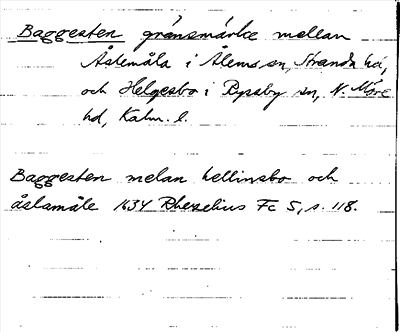 Baggesten gränsmärke mellan
Åstemåla i Ålems sn, Stranda hd,
och Helgesbo i Ryssby sn, N. Möre
hd, Kalm. l.
Baggesten melan hellinsbo och
åslamåle 1634 Rheselius Fc 5, s. 118.